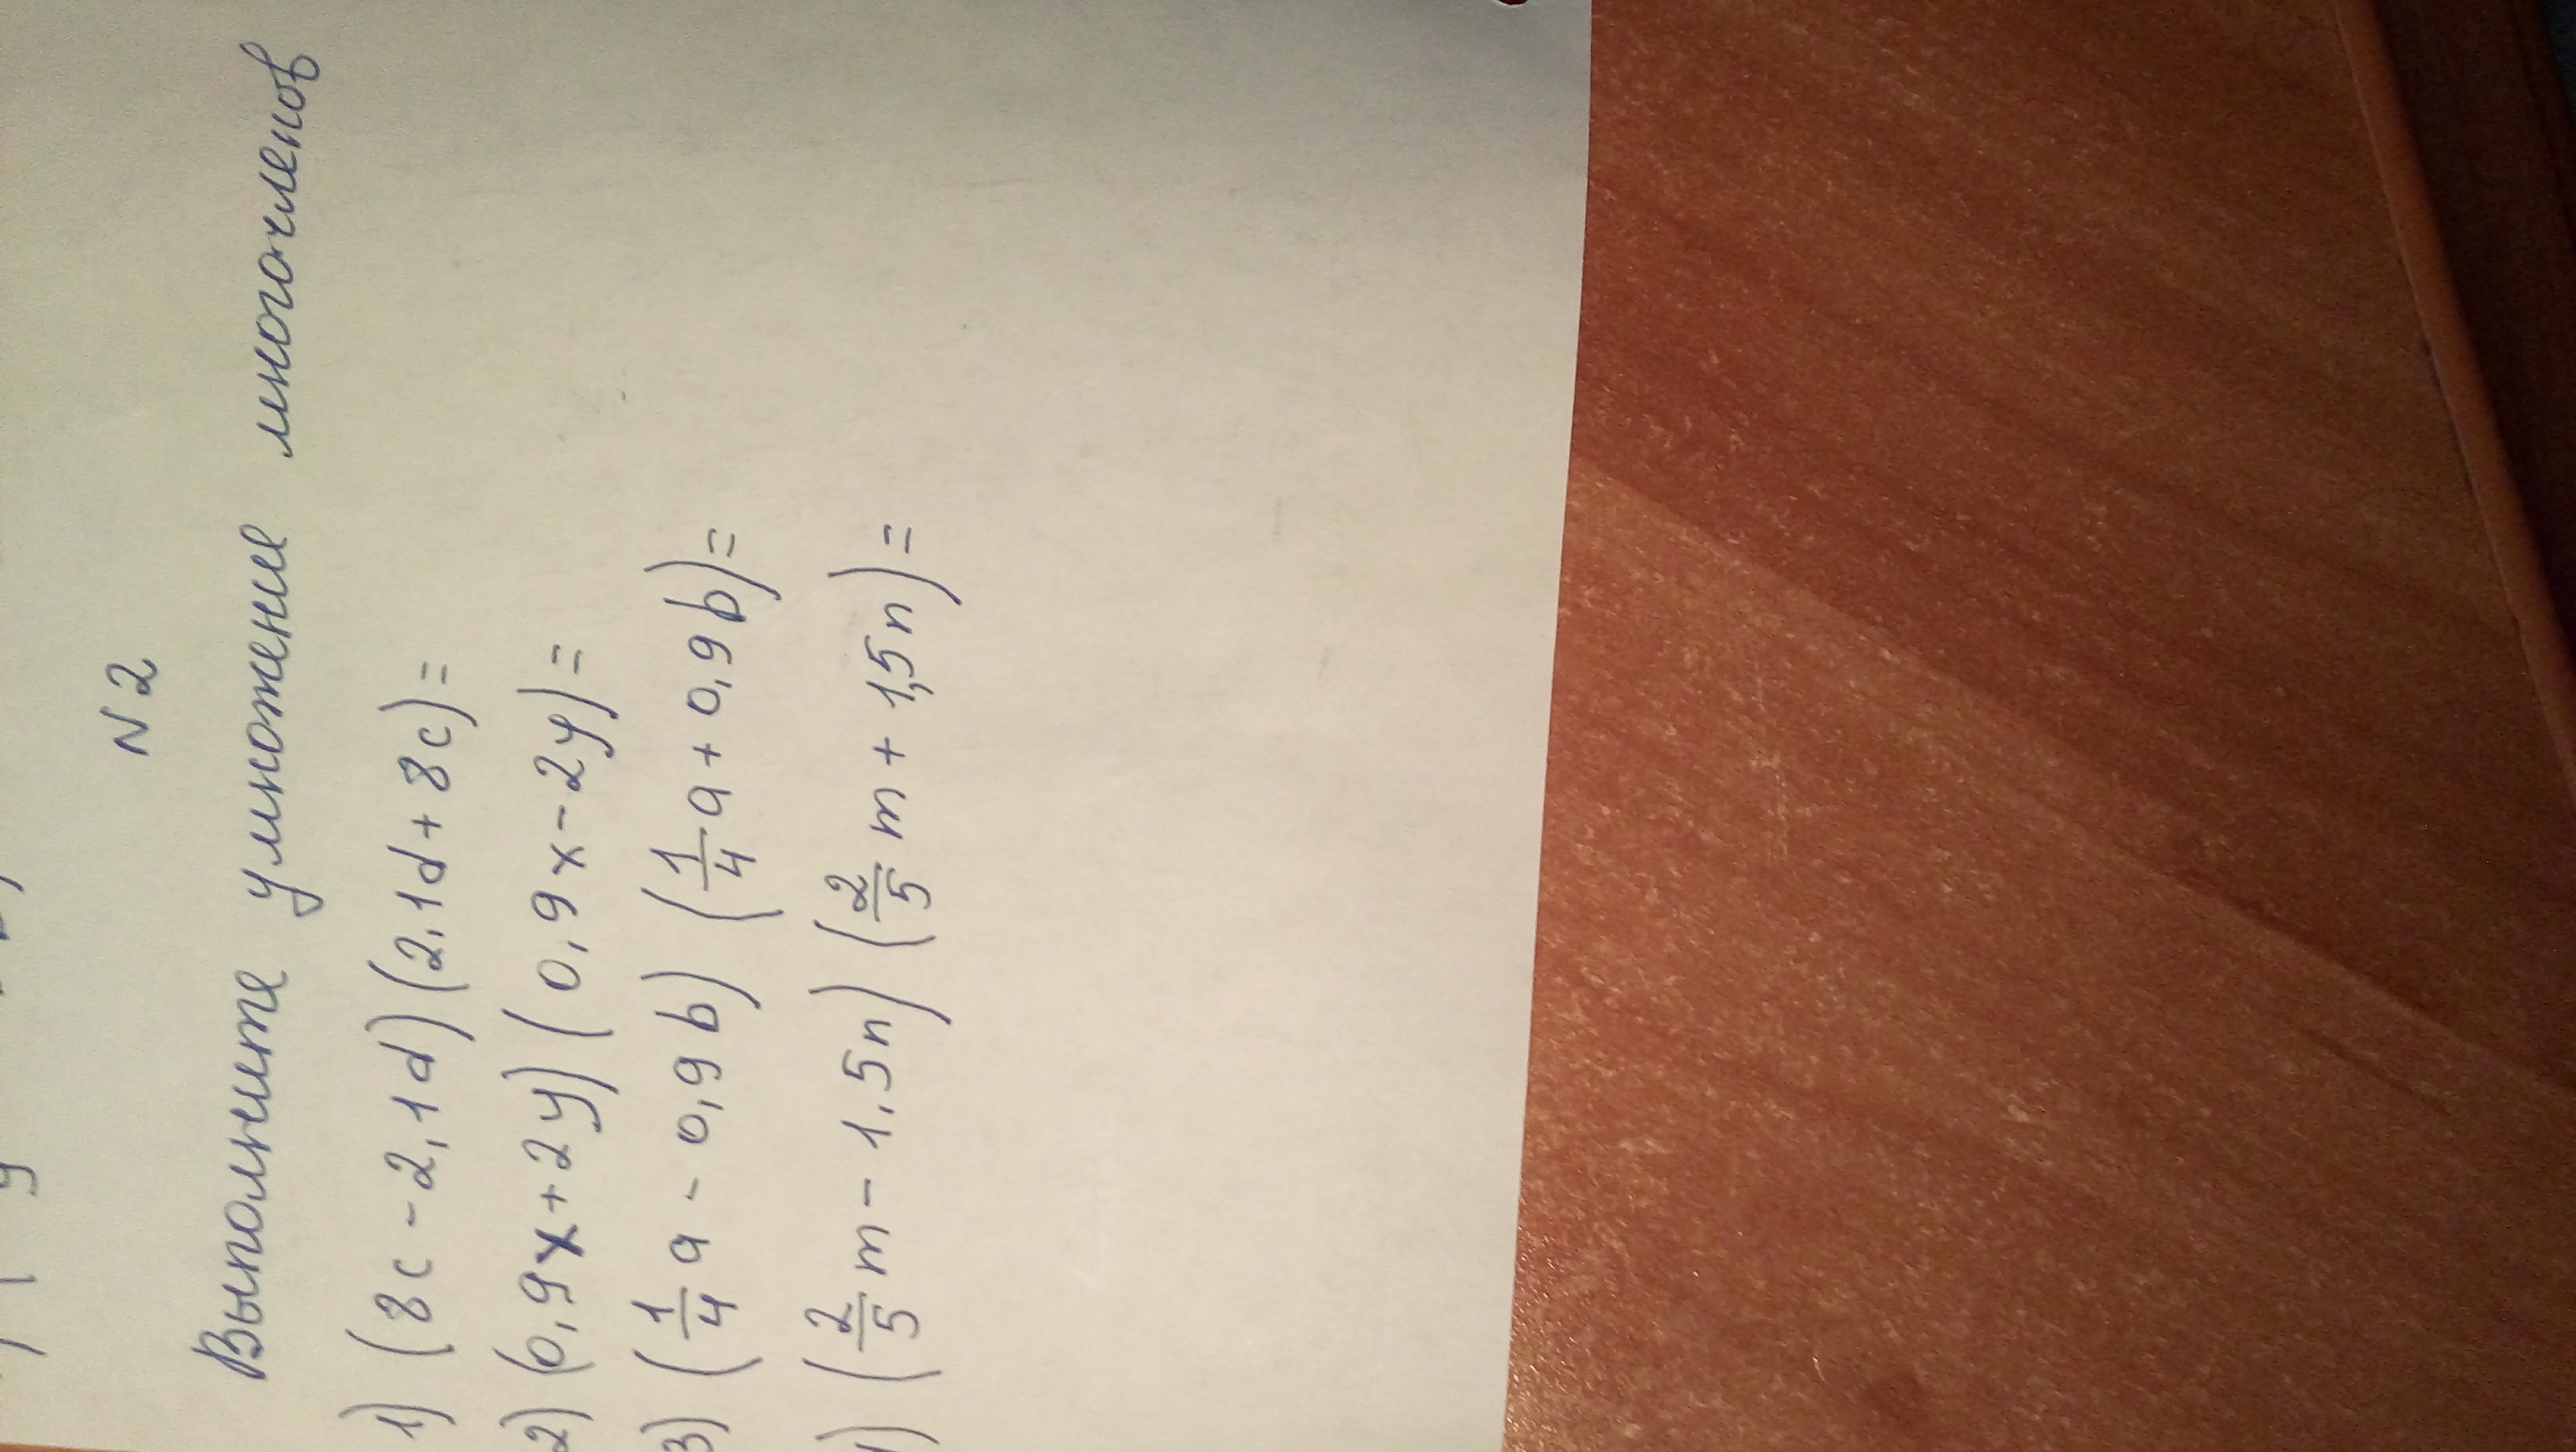 N 2
Выполните умножение многочленов
1) (8c - 2,1d) (2,1d + 8c) =
2) (0,9x + 2y) (0,9x - 2y) =
3) (1/4 a - 0,9b) (1/4 a + 0,9b) =
(2/5 m - 1,5n) (2/5 m + 1,5n) =